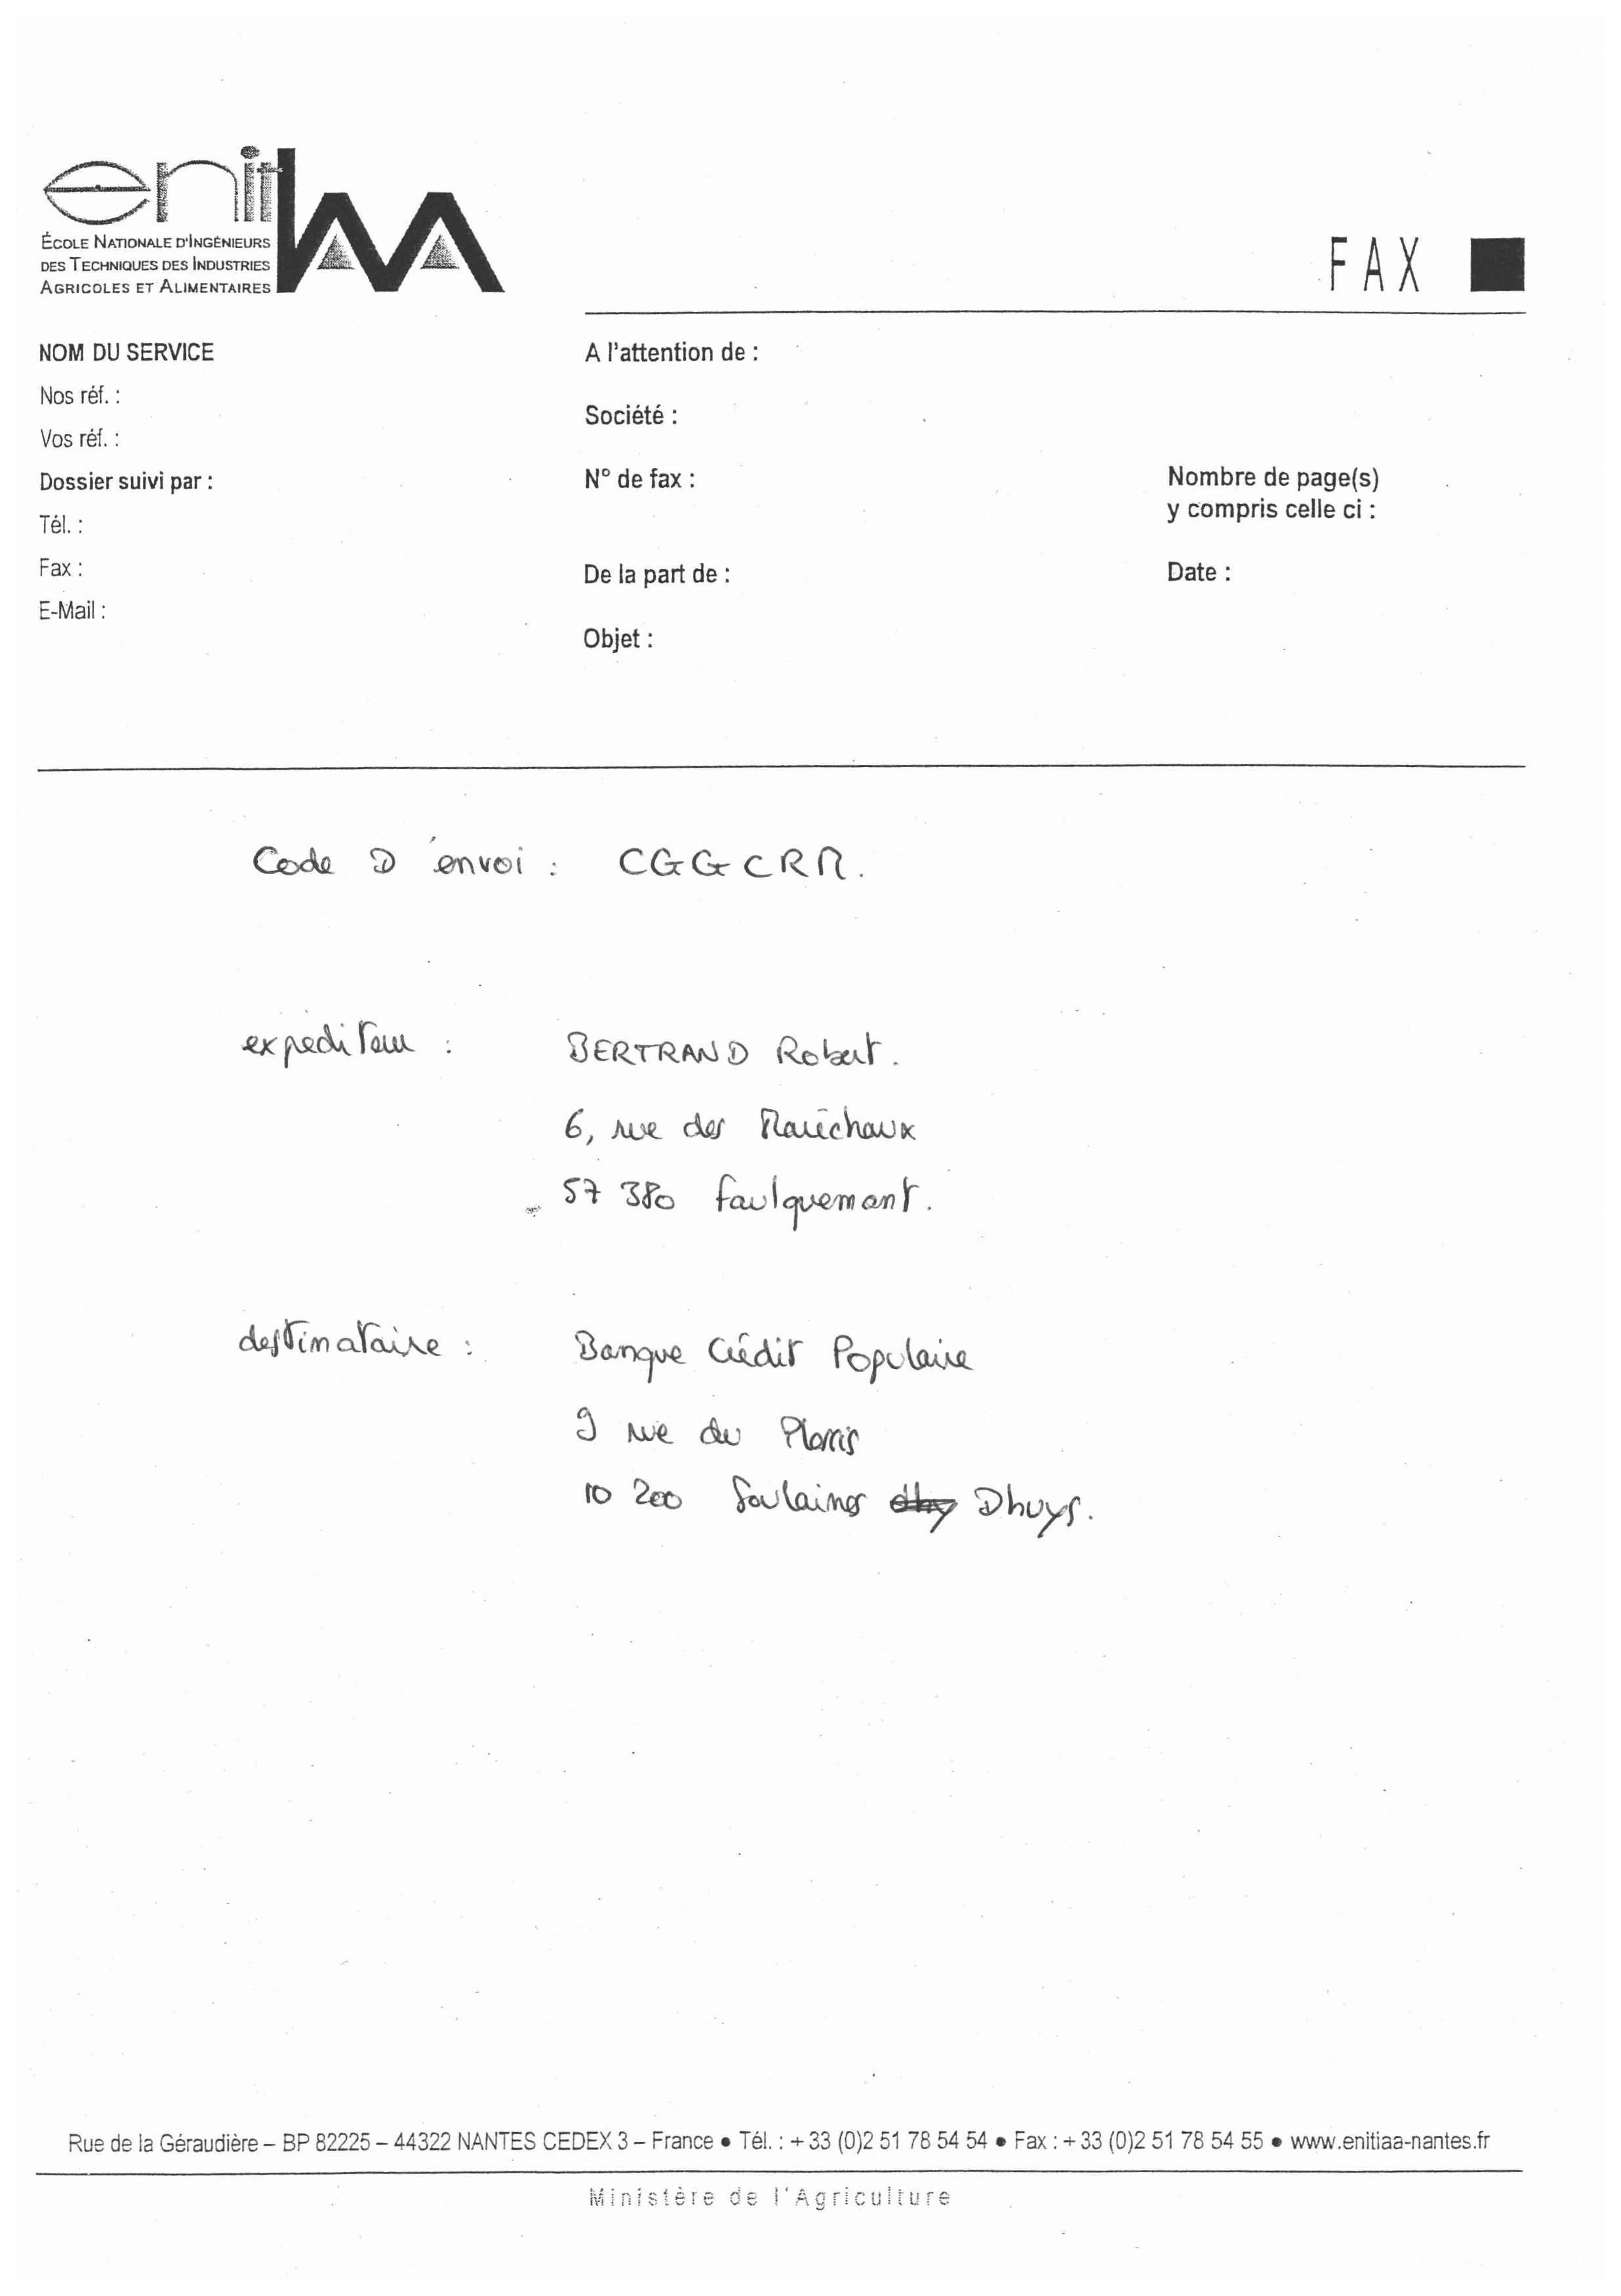 enitIAA
ÉCOLE NATIONALE D'INGÉNIEURS
DES TECHNIQUES DES INDUSTRIES
AGRICOLES ET ALIMENTAIRES
FAX
NOM DU SERVICE
Nos réf. :
Vos réf. :
Dossier suivi par :
Tél. :
Fax :
E-Mail :
A l'attention de :
Société :
N° de fax :
De la part de :
Objet :
Nombre de page(s)
y compris celle ci :
Date :
Code D'envoi : CGGCRM.
expediteur : BERTRAND Robert.
6, rue des Maréchaux
57 380 faulquemont.
destinataire : Banque Crédit Populaire
9 rue du
10 200 Soulaines Dhuys.
Rue de la Géraudière – BP 82225 – 44322 NANTES CEDEX 3 – France • Tél. : + 33 (0)2 51 78 54 54 • Fax : + 33 (0)2 51 78 54 55 • www.enitiaa-nantes.fr
Ministère de l'Agriculture